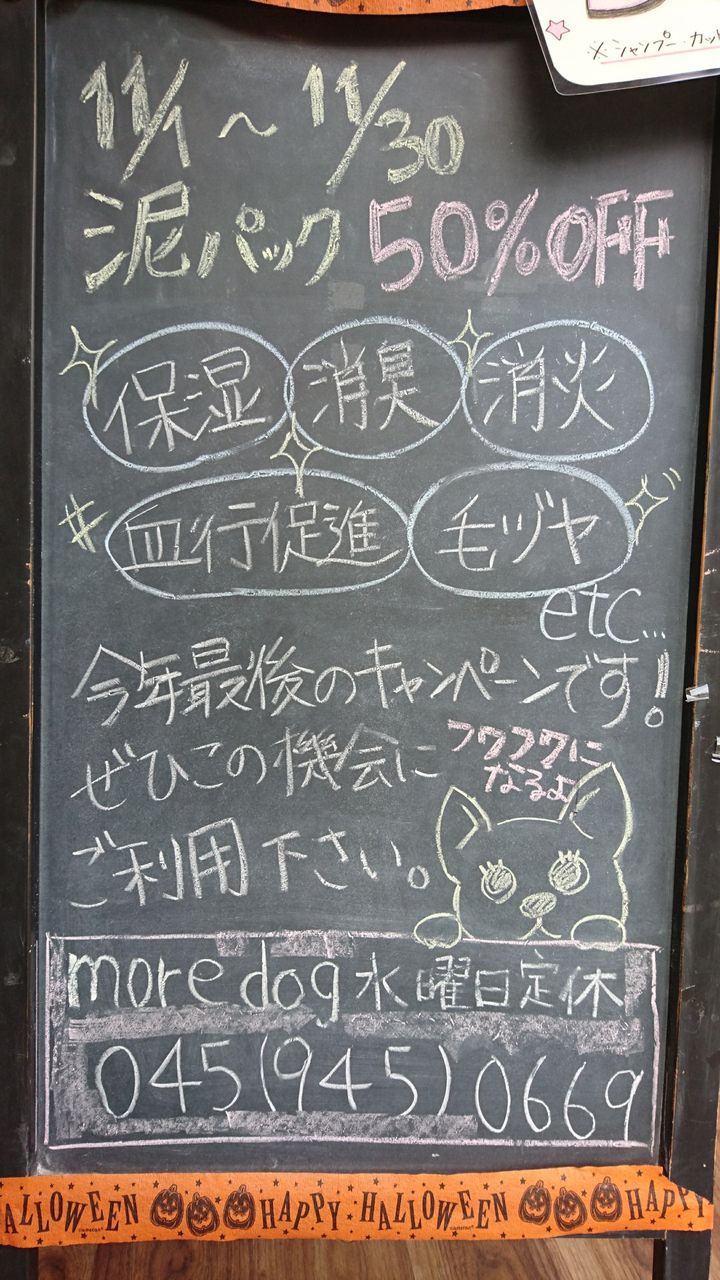 ※シャンプー・カット
11/1 ~ 11/30
泥パック 50%OFF
保湿 消臭 消火
血行促進 毛ヅヤ
etc...
今年最後のキャンペーンです!
ぜひこの機会に
フワフワに
なるよ
ご利用下さい。
more dog 水曜日定休
045(945)0669
ALLOWEEN HAPPY HALLOWEEN HAPPY